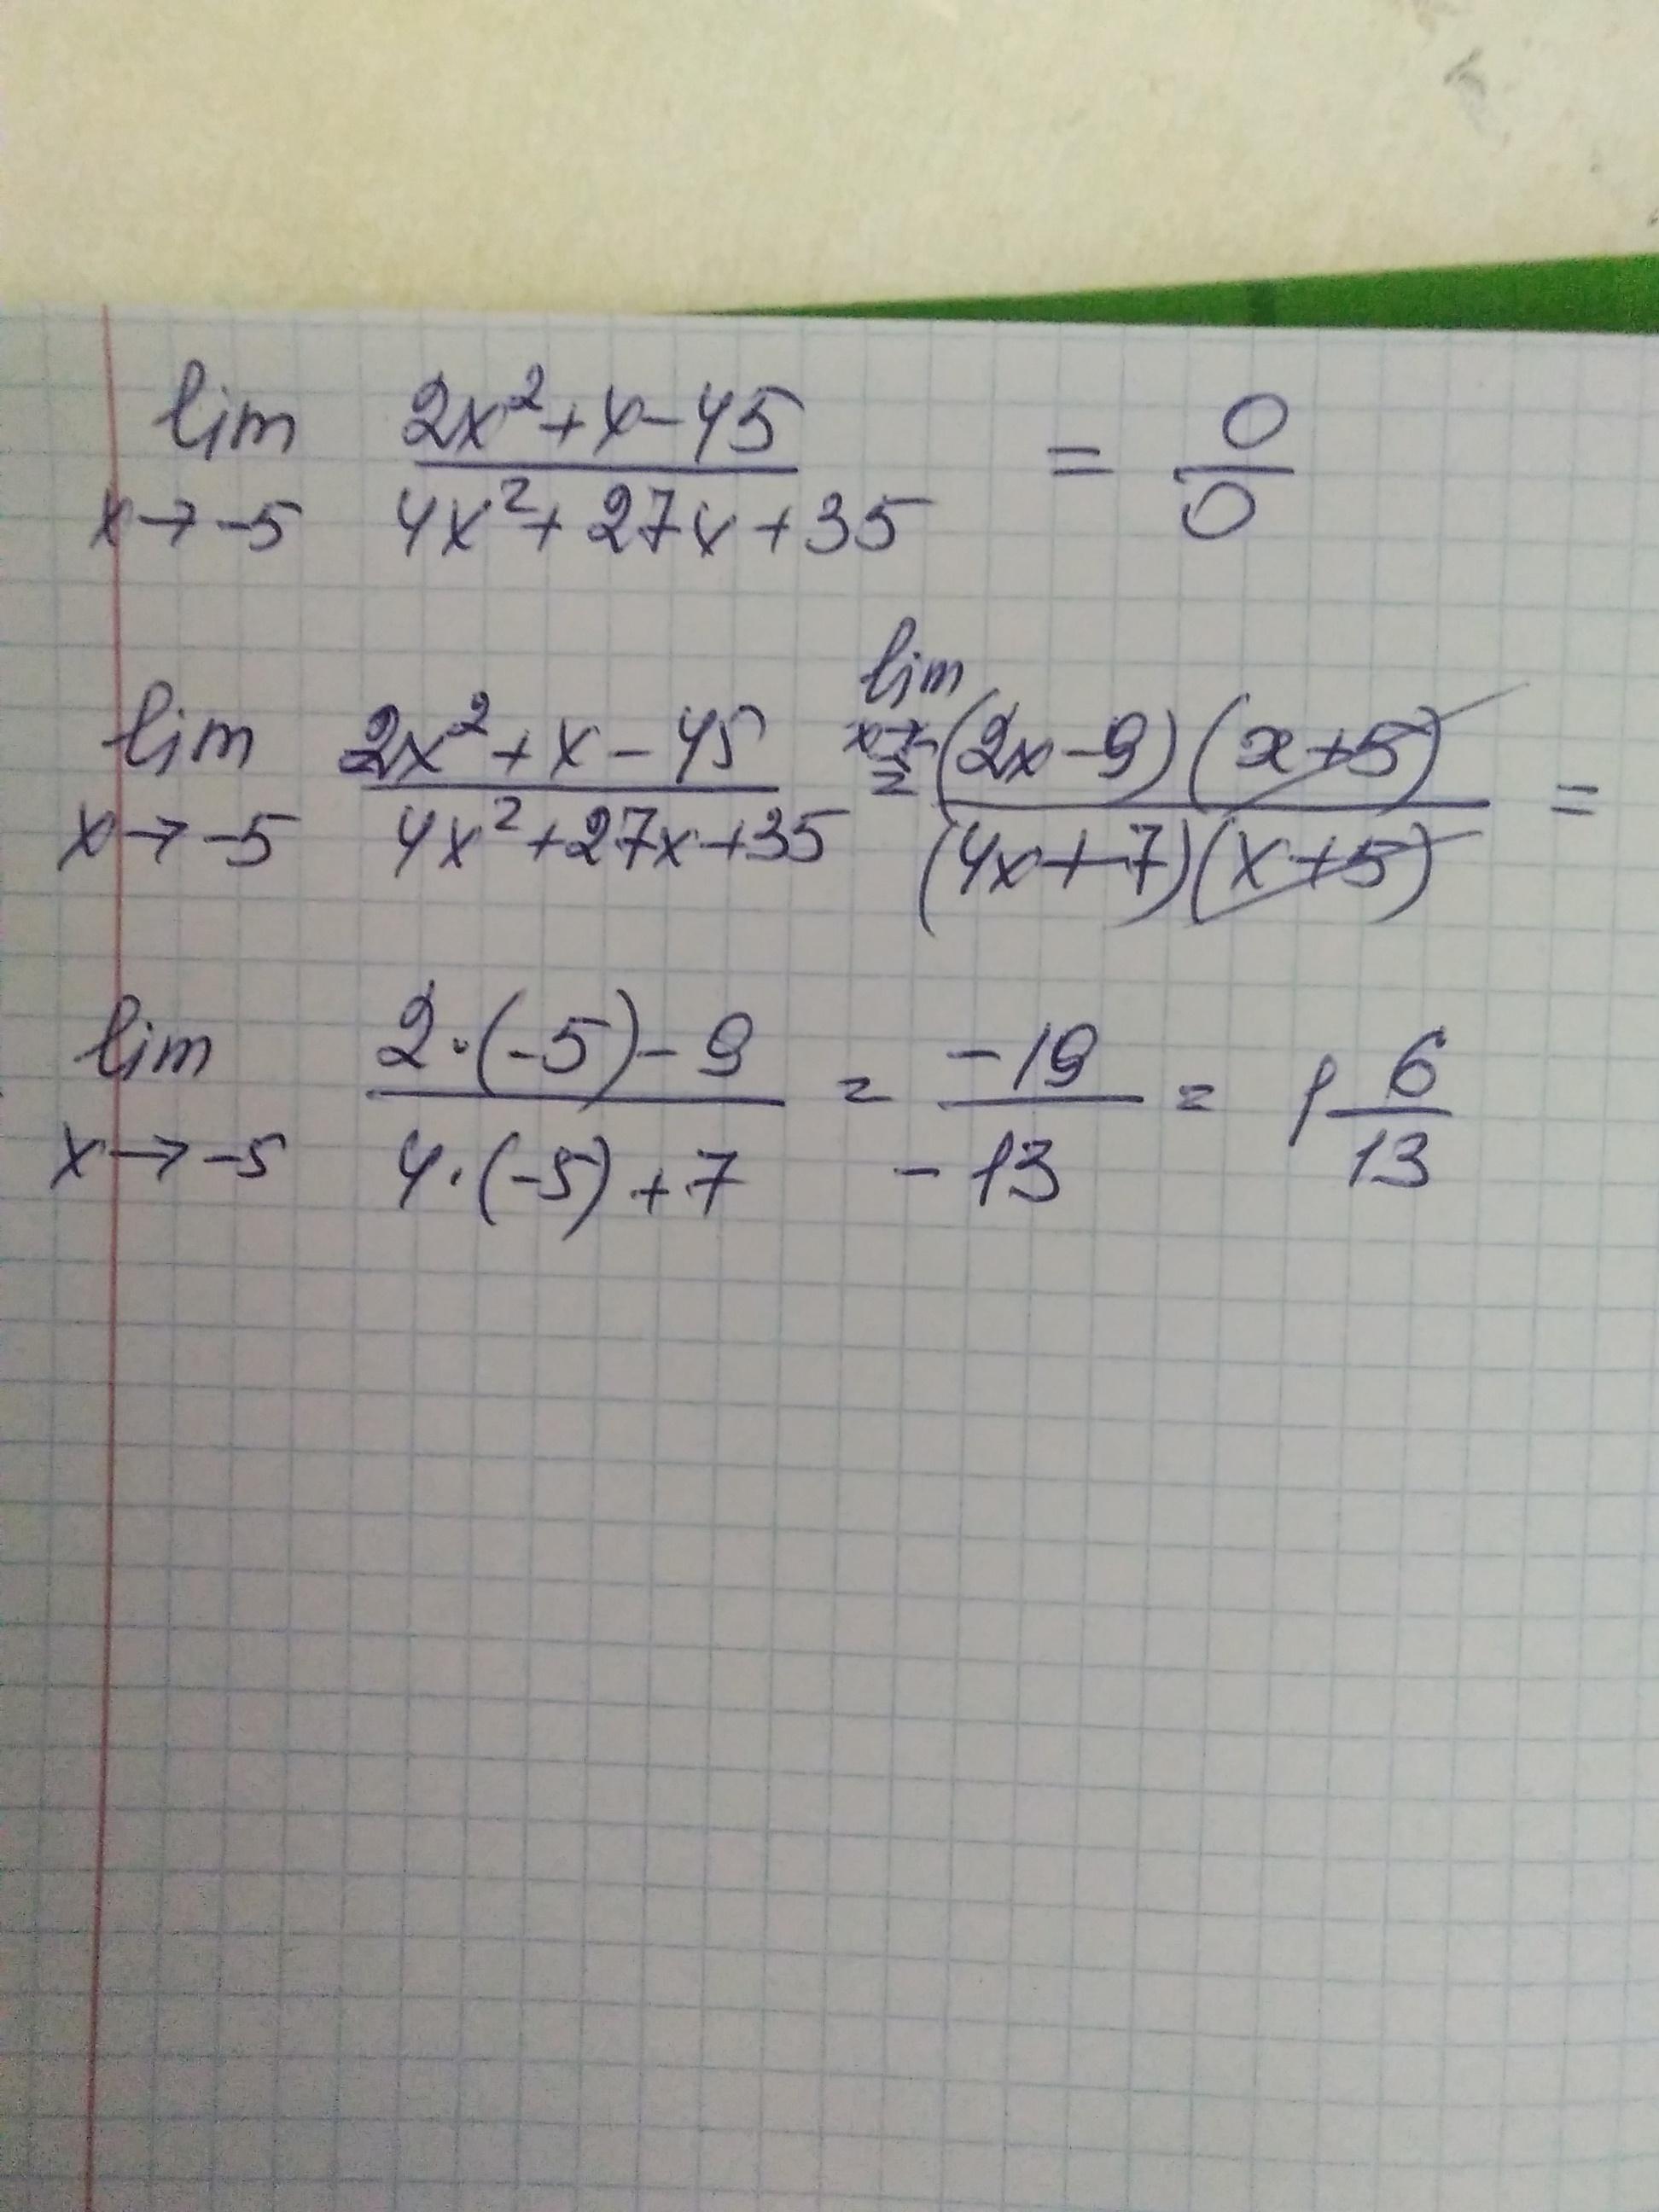 lim x→-5 (2x²+x-45)/(4x²+27x+35) = 0/0
lim x→-5 (2x²+x-45)/(4x²+27x+35) = lim x→-5 ((2x-9)(x+5))/((4x+7)(x+5)) =
lim x→-5 (2·(-5)-9)/(4·(-5)+7) = -19/-13 = 1 6/13